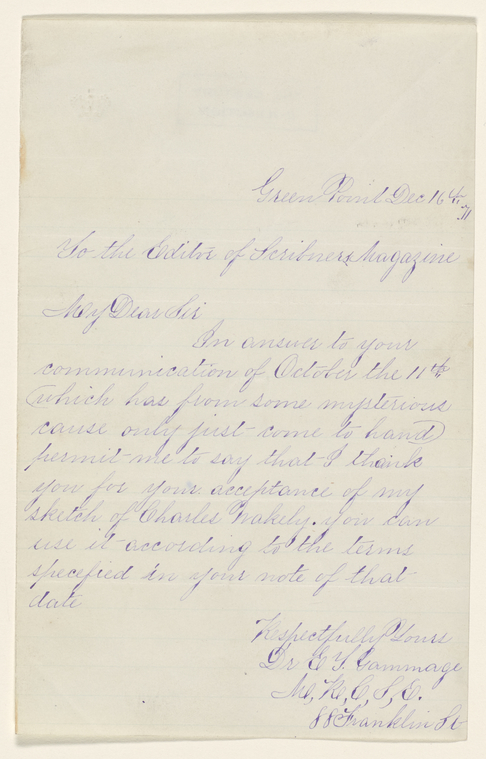 Green Point Dec 16th
71
To the Editor of Scribners Magazine
My Dear Sir
In answer to your
communication of October the 11th
(which has from some mysterious
cause only just come to hand)
permit me to say that I thank
you for your acceptance of my
sketch of Charles Wakely. you can
use it according to the terms
specefied in your note of that
date
Respectfully Yours
Dr E Y. Gammage
M, R, C, S, E.
88 Franklin St